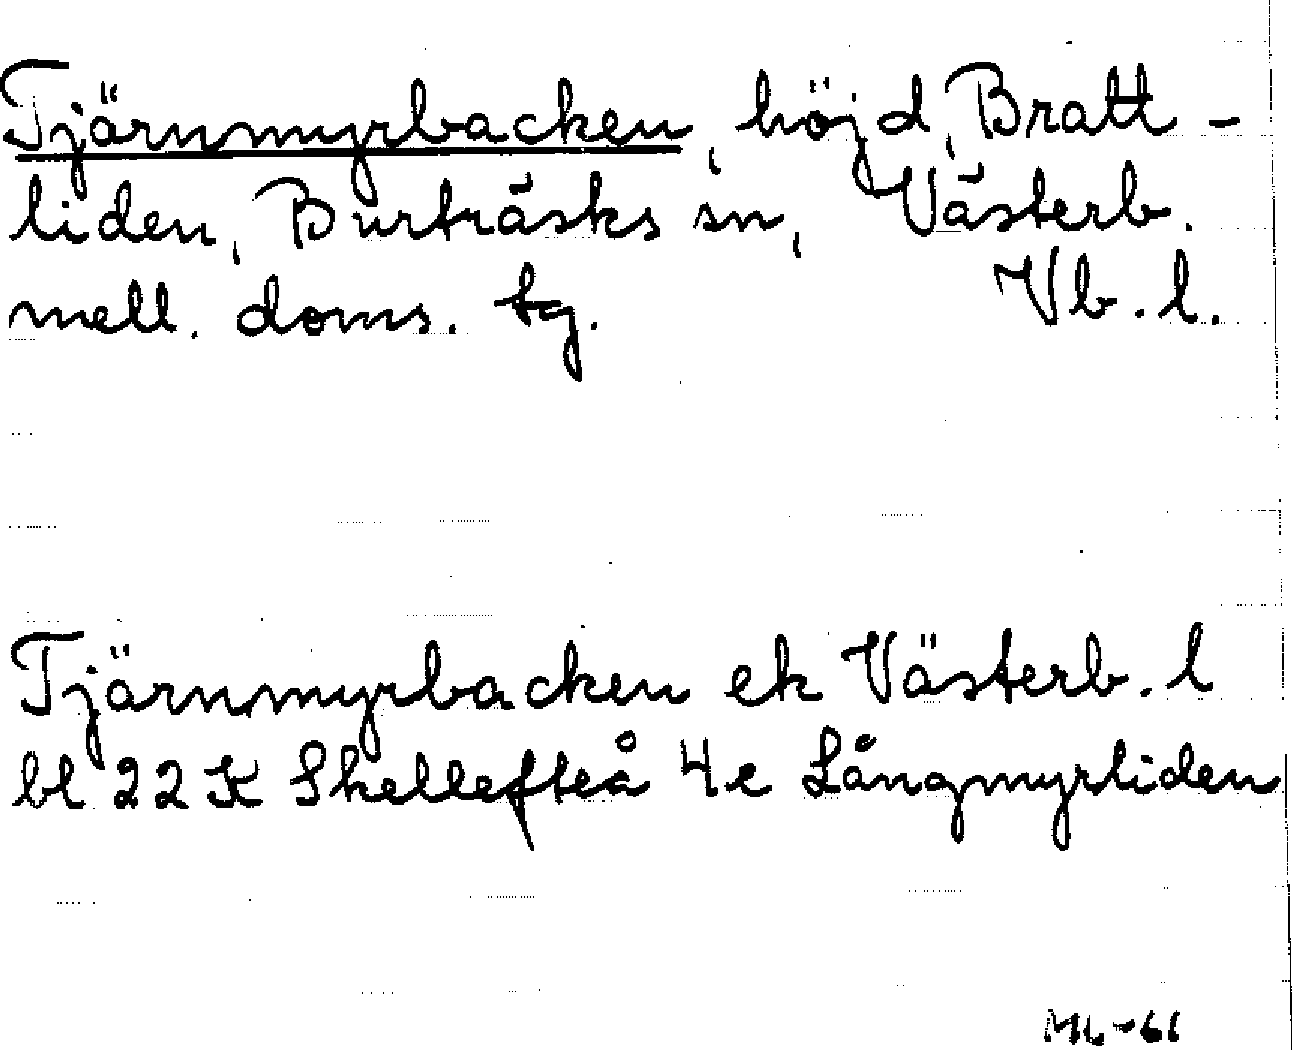 Tjärnmyrbacken, höjd, Bratt-
liden, Burträsks sn, Västerb.
mell. doms. tg. Vb. l.
Tjärnmyrbacken ek Västerb. l
bl 22 K Skellefteå 4e Långmyrliden
ML-61